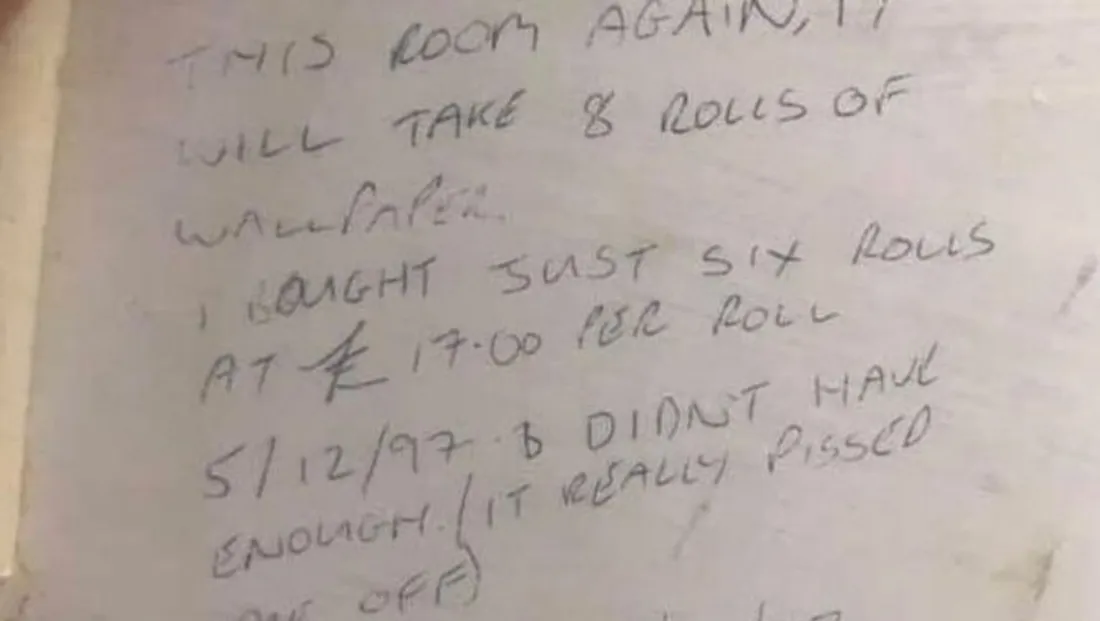 THIS ROOM AGAIN, IT
WILL TAKE 8 ROLLS OF
WALLPAPER.
I BOUGHT JUST SIX ROLLS
AT £ 17.00 PER ROLL
5/12/97 & DIDN'T HAVE
ENOUGH. (IT REALLY PISSED
ME OFF)